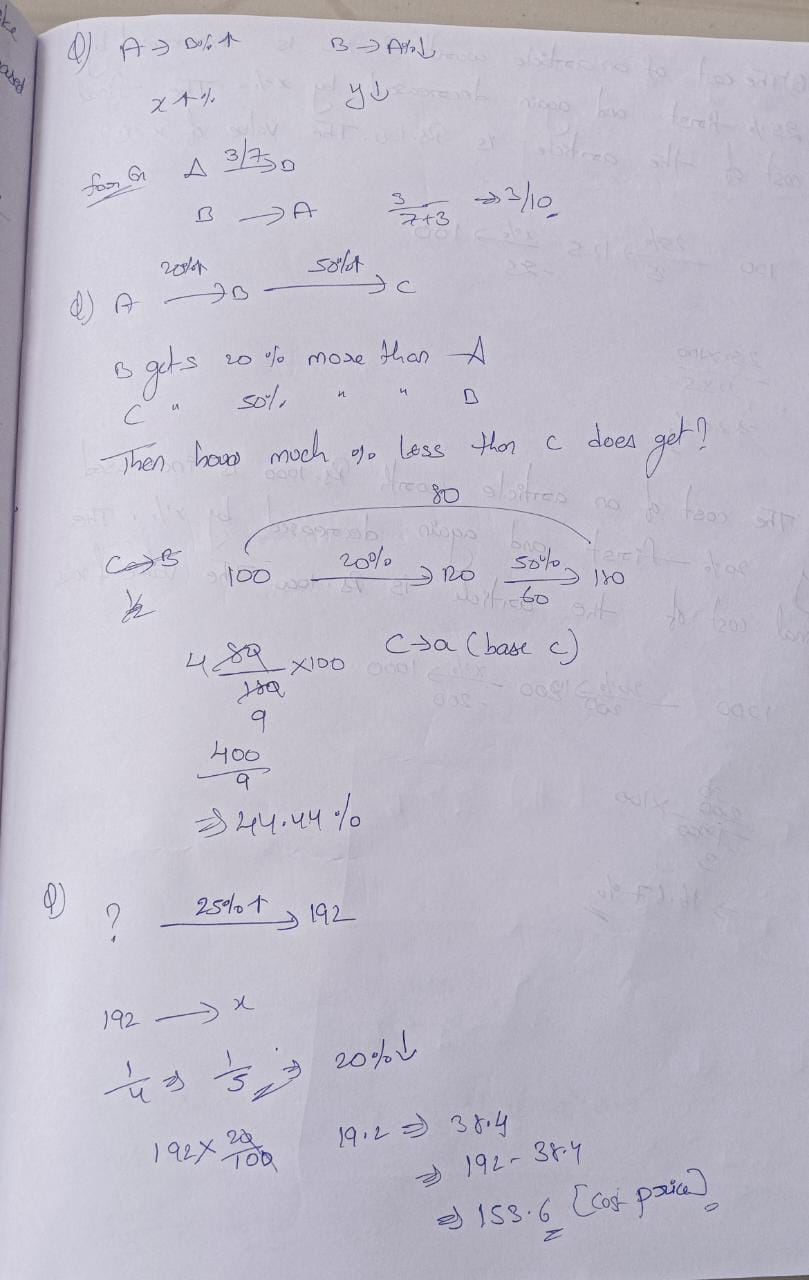 Q) A → B% ↑ B → A% ↓
x ↑ % y ↓
for Ex A 3/7 → B
B → A 3/7+3 ⇒ 3/10
Q) A 20% ↑ → B 50% ↑ → C
B gets 20 % more than A
C " 50% " " B
Then how much % less than C does get?
80
C → B 100 20% → 120 50% → 180
60
4 80/180 × 100 C → a (base c)
9
400/9
⇒ 44.44 %
Q) ? 25% ↑ → 192
192 → x
1/4 ⇒ 1/5 ⇒ 20% ↓
192 × 20/100 19.2 ⇒ 38.4
⇒ 192 - 38.4
⇒ 153.6 [Cost price]